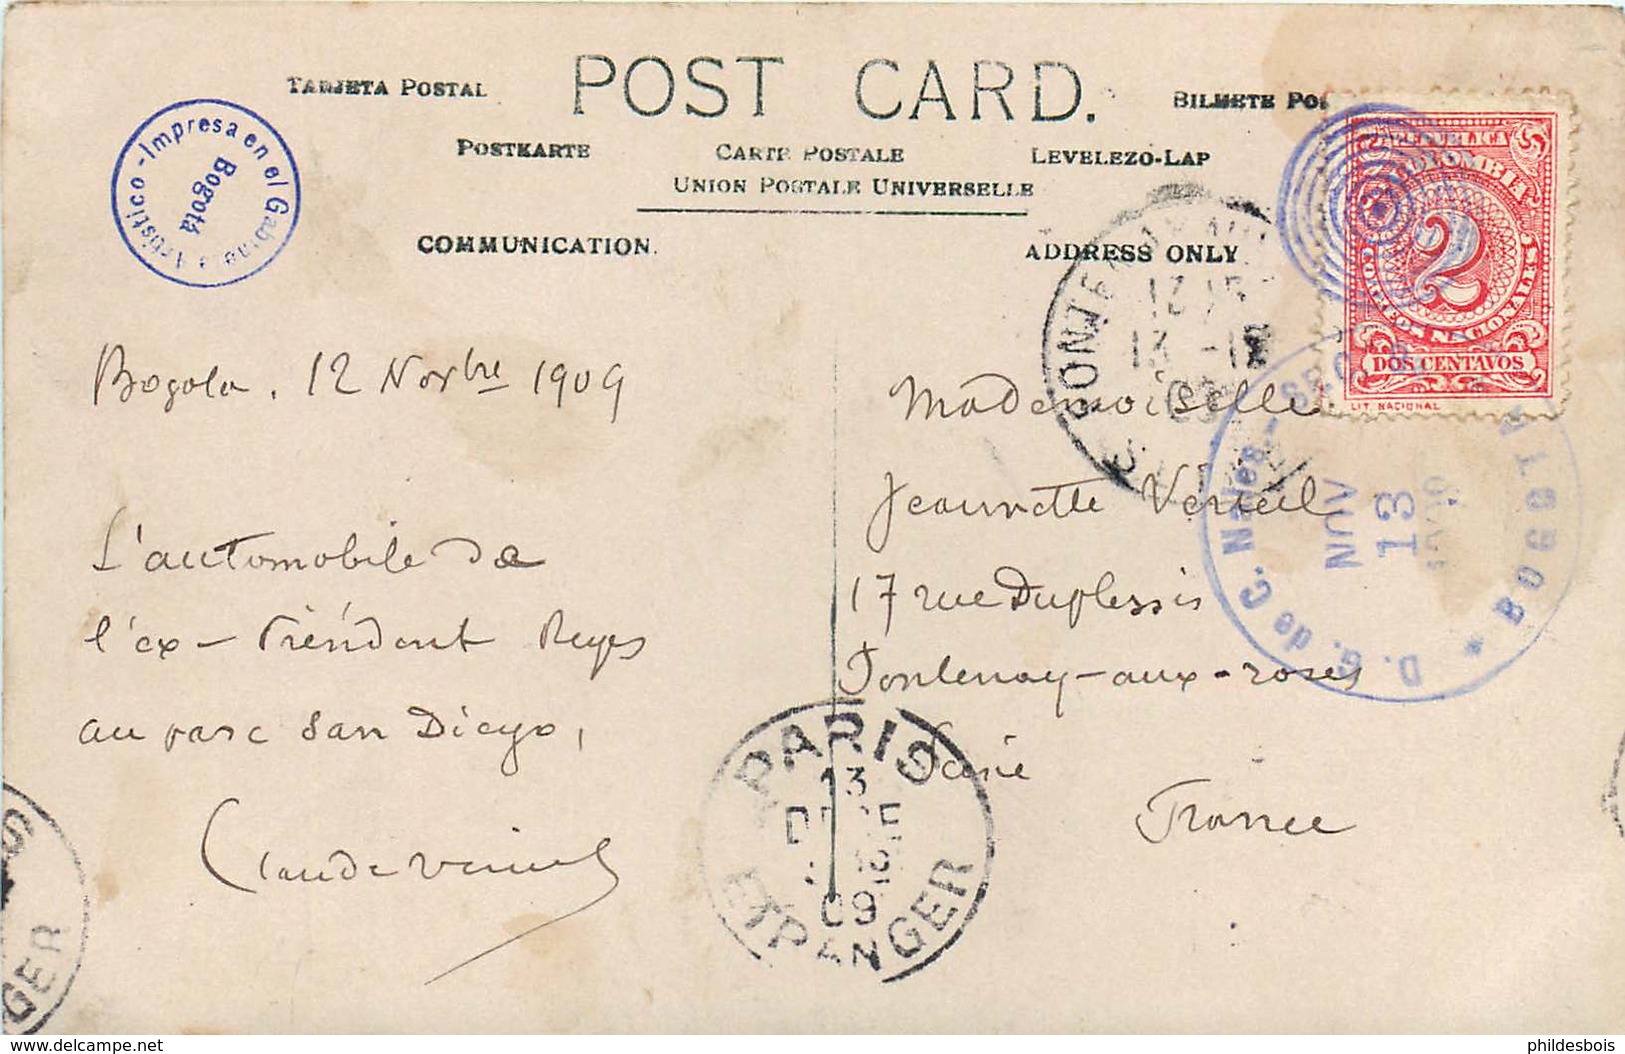 TARJETA POSTAL
POST CARD.
BILHETE POS
POSTKARTE
CARTE POSTALE
LEVELEZO-LAP
UNION POSTALE UNIVERSELLE
COMMUNICATION.
ADDRESS ONLY
Impresa en el Gabinete Artistico -
Bogotá
REPUBLICA
DE COLOMBIA
2
CORREOS NACIONALES
DOS CENTAVOS
LIT. NACIONAL
FONTENAY AUX
13 - 12
09
D. G. de C. Nales.
BOGOTA
NOV
13
Bogota, 12 Novbre 1909
L'automobile de
l'ex-Président Reyes
au parc San Diego,
Claude
Mademoiselle
Jeannette
17 rue Duplessis
Fontenay-aux-roses
Seine
France
PARIS
13
DECE
09
ETRANGER
GER
delcampe.net
phildesbois